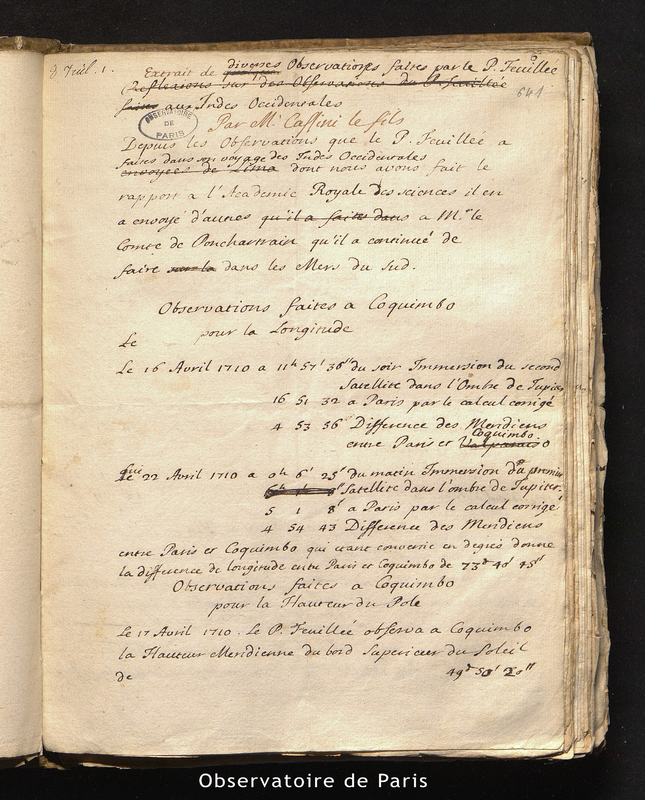 Extrait de diverses Observations faites par le P. Feuillée
Reflexions sur des Observations du P. feuillée
faites aux Indes Occidentales
641
OBSERVATOIRE DE PARIS
Par Mr. Cassini le fils
Depuis les Observations que le P. Feuillée a
faites dans son voyage des Indes Occidentales
envoyées de Lima dont nous avons fait le
rapport a l'Academie Royale des sciences il en
a envoyé d'autres qu'il a faites dans a Mr. le
Comte de Ponchartrain qu'il a continué de
faire sur la dans les Mers du Sud.
Observations faites a Coquimbo
pour la Longitude
Le
Le 16 Avril 1710 a 11h 57' 36" du soir Immersion du second
Satellite dans l'Ombre de Jupiter
16 51 32 a Paris par le calcul corrigé
4 53 56 Difference des Meridiens
entre Paris et Valparaiso Coquimbo
Le 22 Avril 1710 a 0h 6' 25" du matin Immersion du premier
Satellite dans l'ombre de Jupiter.
5 1 8 a Paris par le calcul corrigé
4 54 43 Difference des Meridiens
entre Paris et Coquimbo qui etant convertie en degrés donne
la difference de longitude entre Paris et Coquimbo de 73d 40' 45"
Observations faites a Coquimbo
pour la Hauteur du Pole
Le 17 Avril 1710. Le P. Feuillée observa a Coquimbo
la Hauteur Meridienne du bord Superieur du Soleil
de 49d 50' 20"
Observatoire de Paris